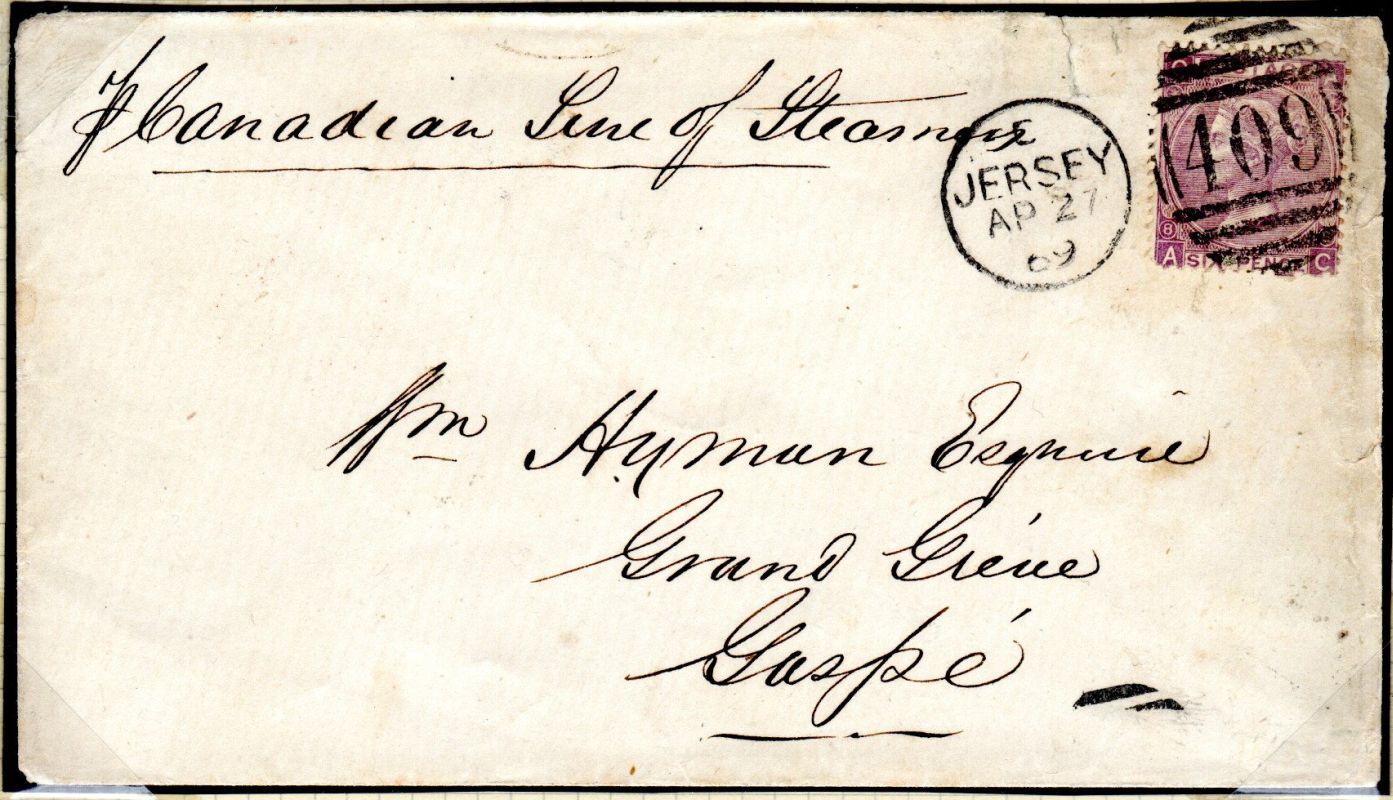 p Canadian Line of Steamers
E
JERSEY
AP 27
69
POSTAGE
409
8
A SIX PENCE C
Wm Hyman Esquire
Grand Grève
Gaspé